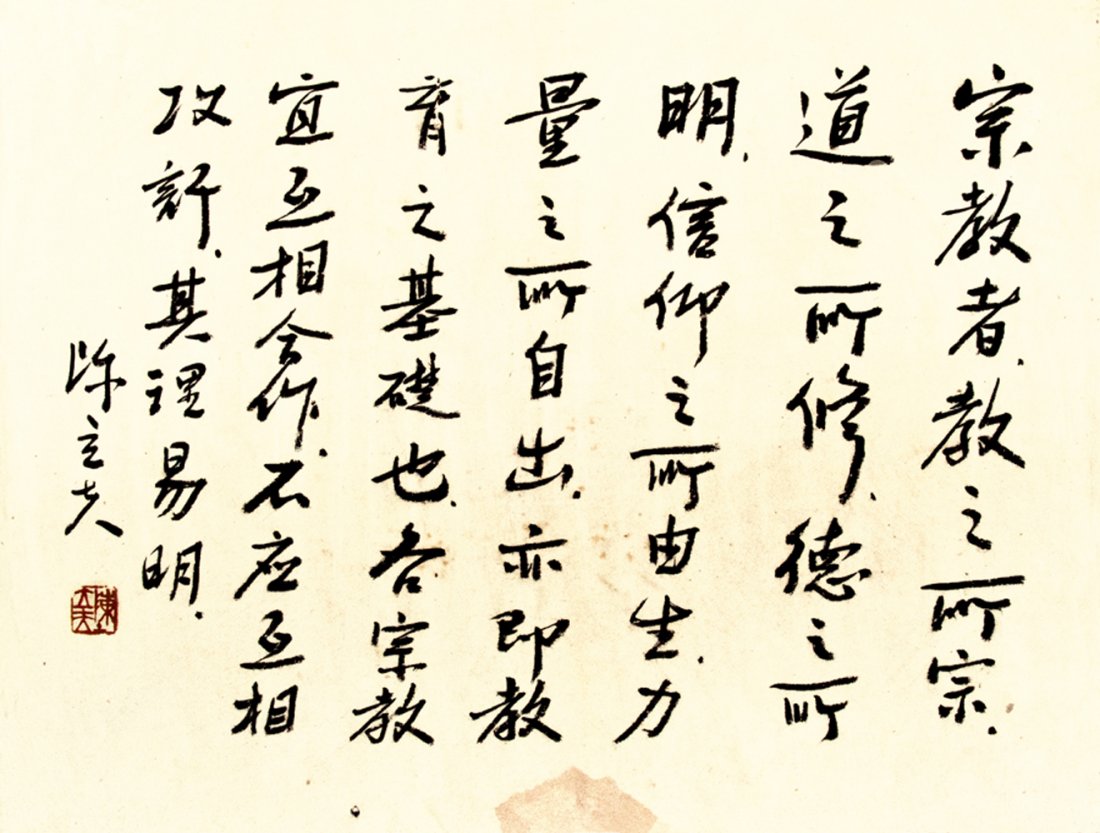 宗教者、教之所宗、
道之所修、德之所
明、信仰之所由生、力
量之所自出、亦即教
育之基礎也、各宗教
宜互相合作、不应互相
攻訐、其理易明、
陈立夫
陳立夫